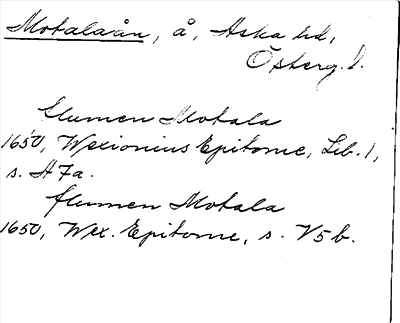 Motalaån, å, Aska hd,
Österg. l.
flumen Motala
1650, Wexionius Epitome, Lib. 1,
s. A7a.
flumen Motala
1650, Wex. Epitome, s. V5b.